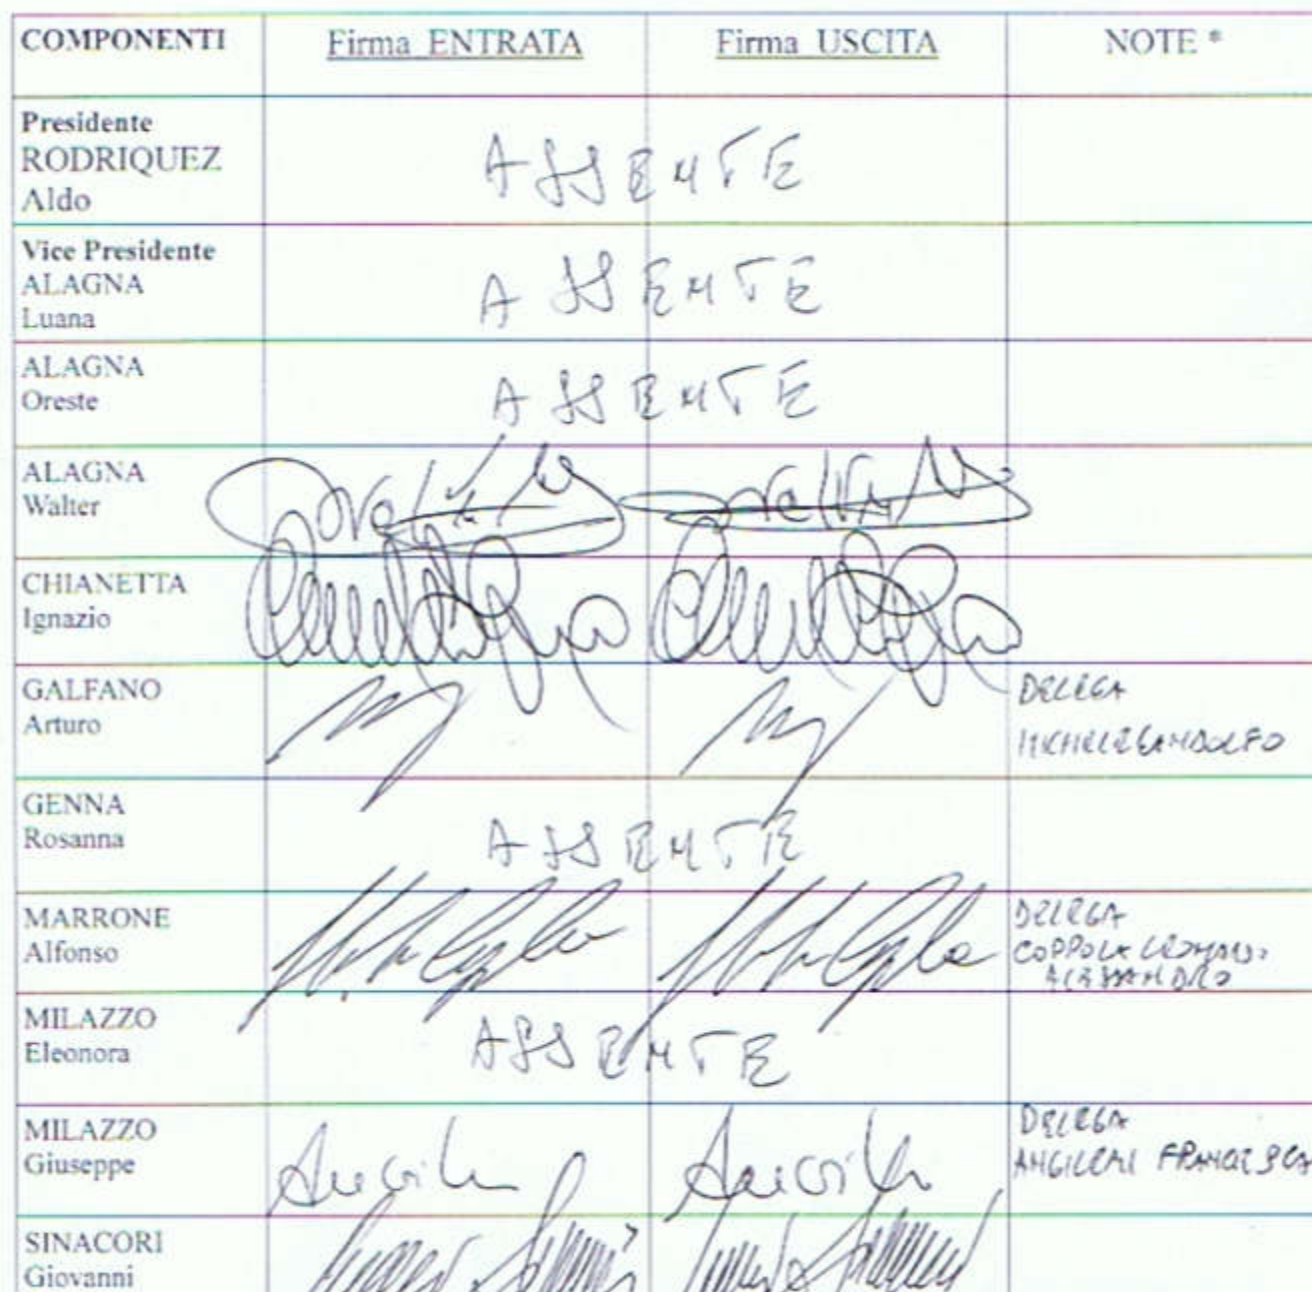 COMPONENTI Firma ENTRATA Firma USCITA NOTE *
Presidente
RODRIQUEZ
Aldo
ASSENTE
Vice Presidente
ALAGNA
Luana
ASSENTE
ALAGNA
Oreste
ASSENTE
ALAGNA
Walter
CHIANETTA
Ignazio
GALFANO
Arturo
DELEGA
MICHELE GANDOLFO
GENNA
Rosanna
ASSENTE
MARRONE
Alfonso
DELEGA
COPPOLA LEONARDO
ALESSANDRO
MILAZZO
Eleonora
ASSENTE
MILAZZO
Giuseppe
DELEGA
ANGILERI FRANCESCA
SINACORI
Giovanni